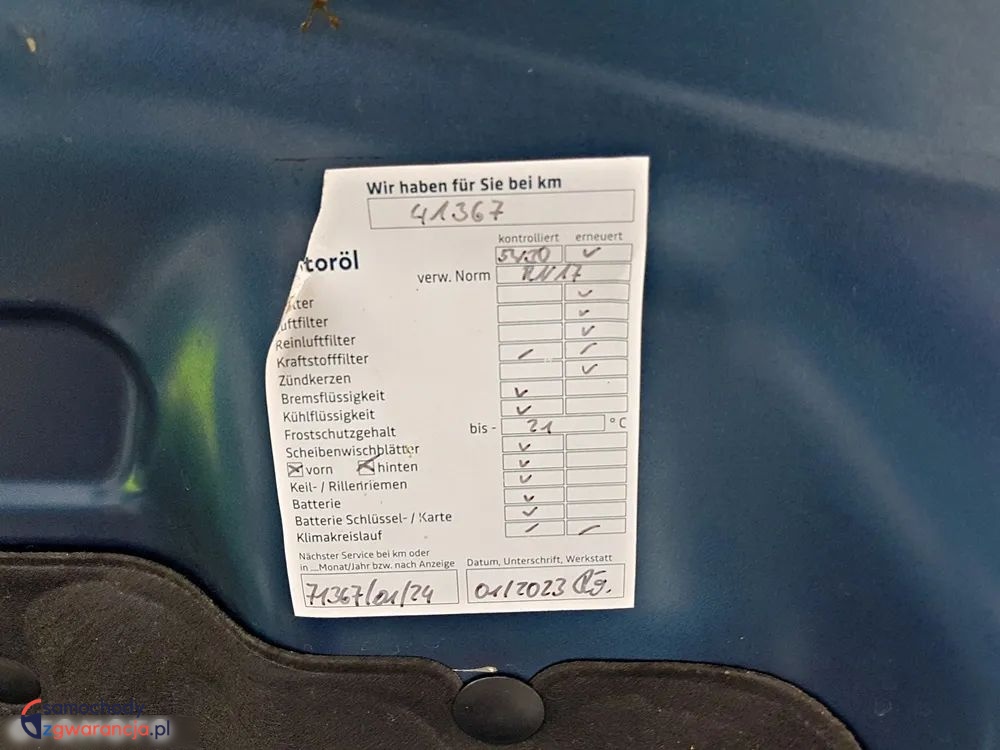 Wir haben für Sie bei km
41367
kontrolliert erneuert
toröl 5W30 ✓
verw. Norm RN17
lter ✓
uftfilter ✓
Reinluftfilter ✓
Kraftstofffilter
Zündkerzen ✓
Bremsflüssigkeit ✓
Kühlflüssigkeit ✓
Frostschutzgehalt bis - 21 °C
Scheibenwischblätter ✓
☒ vorn ☒ hinten ✓
Keil- / Rillenriemen ✓
Batterie ✓
Batterie Schlüssel- / Karte ✓
Klimakreislauf
Nächster Service bei km oder
in ...Monat/Jahr bzw. nach Anzeige
71367/01/24
Datum, Unterschrift, Werkstatt
01/2023
samochody
zgwarancja.pl